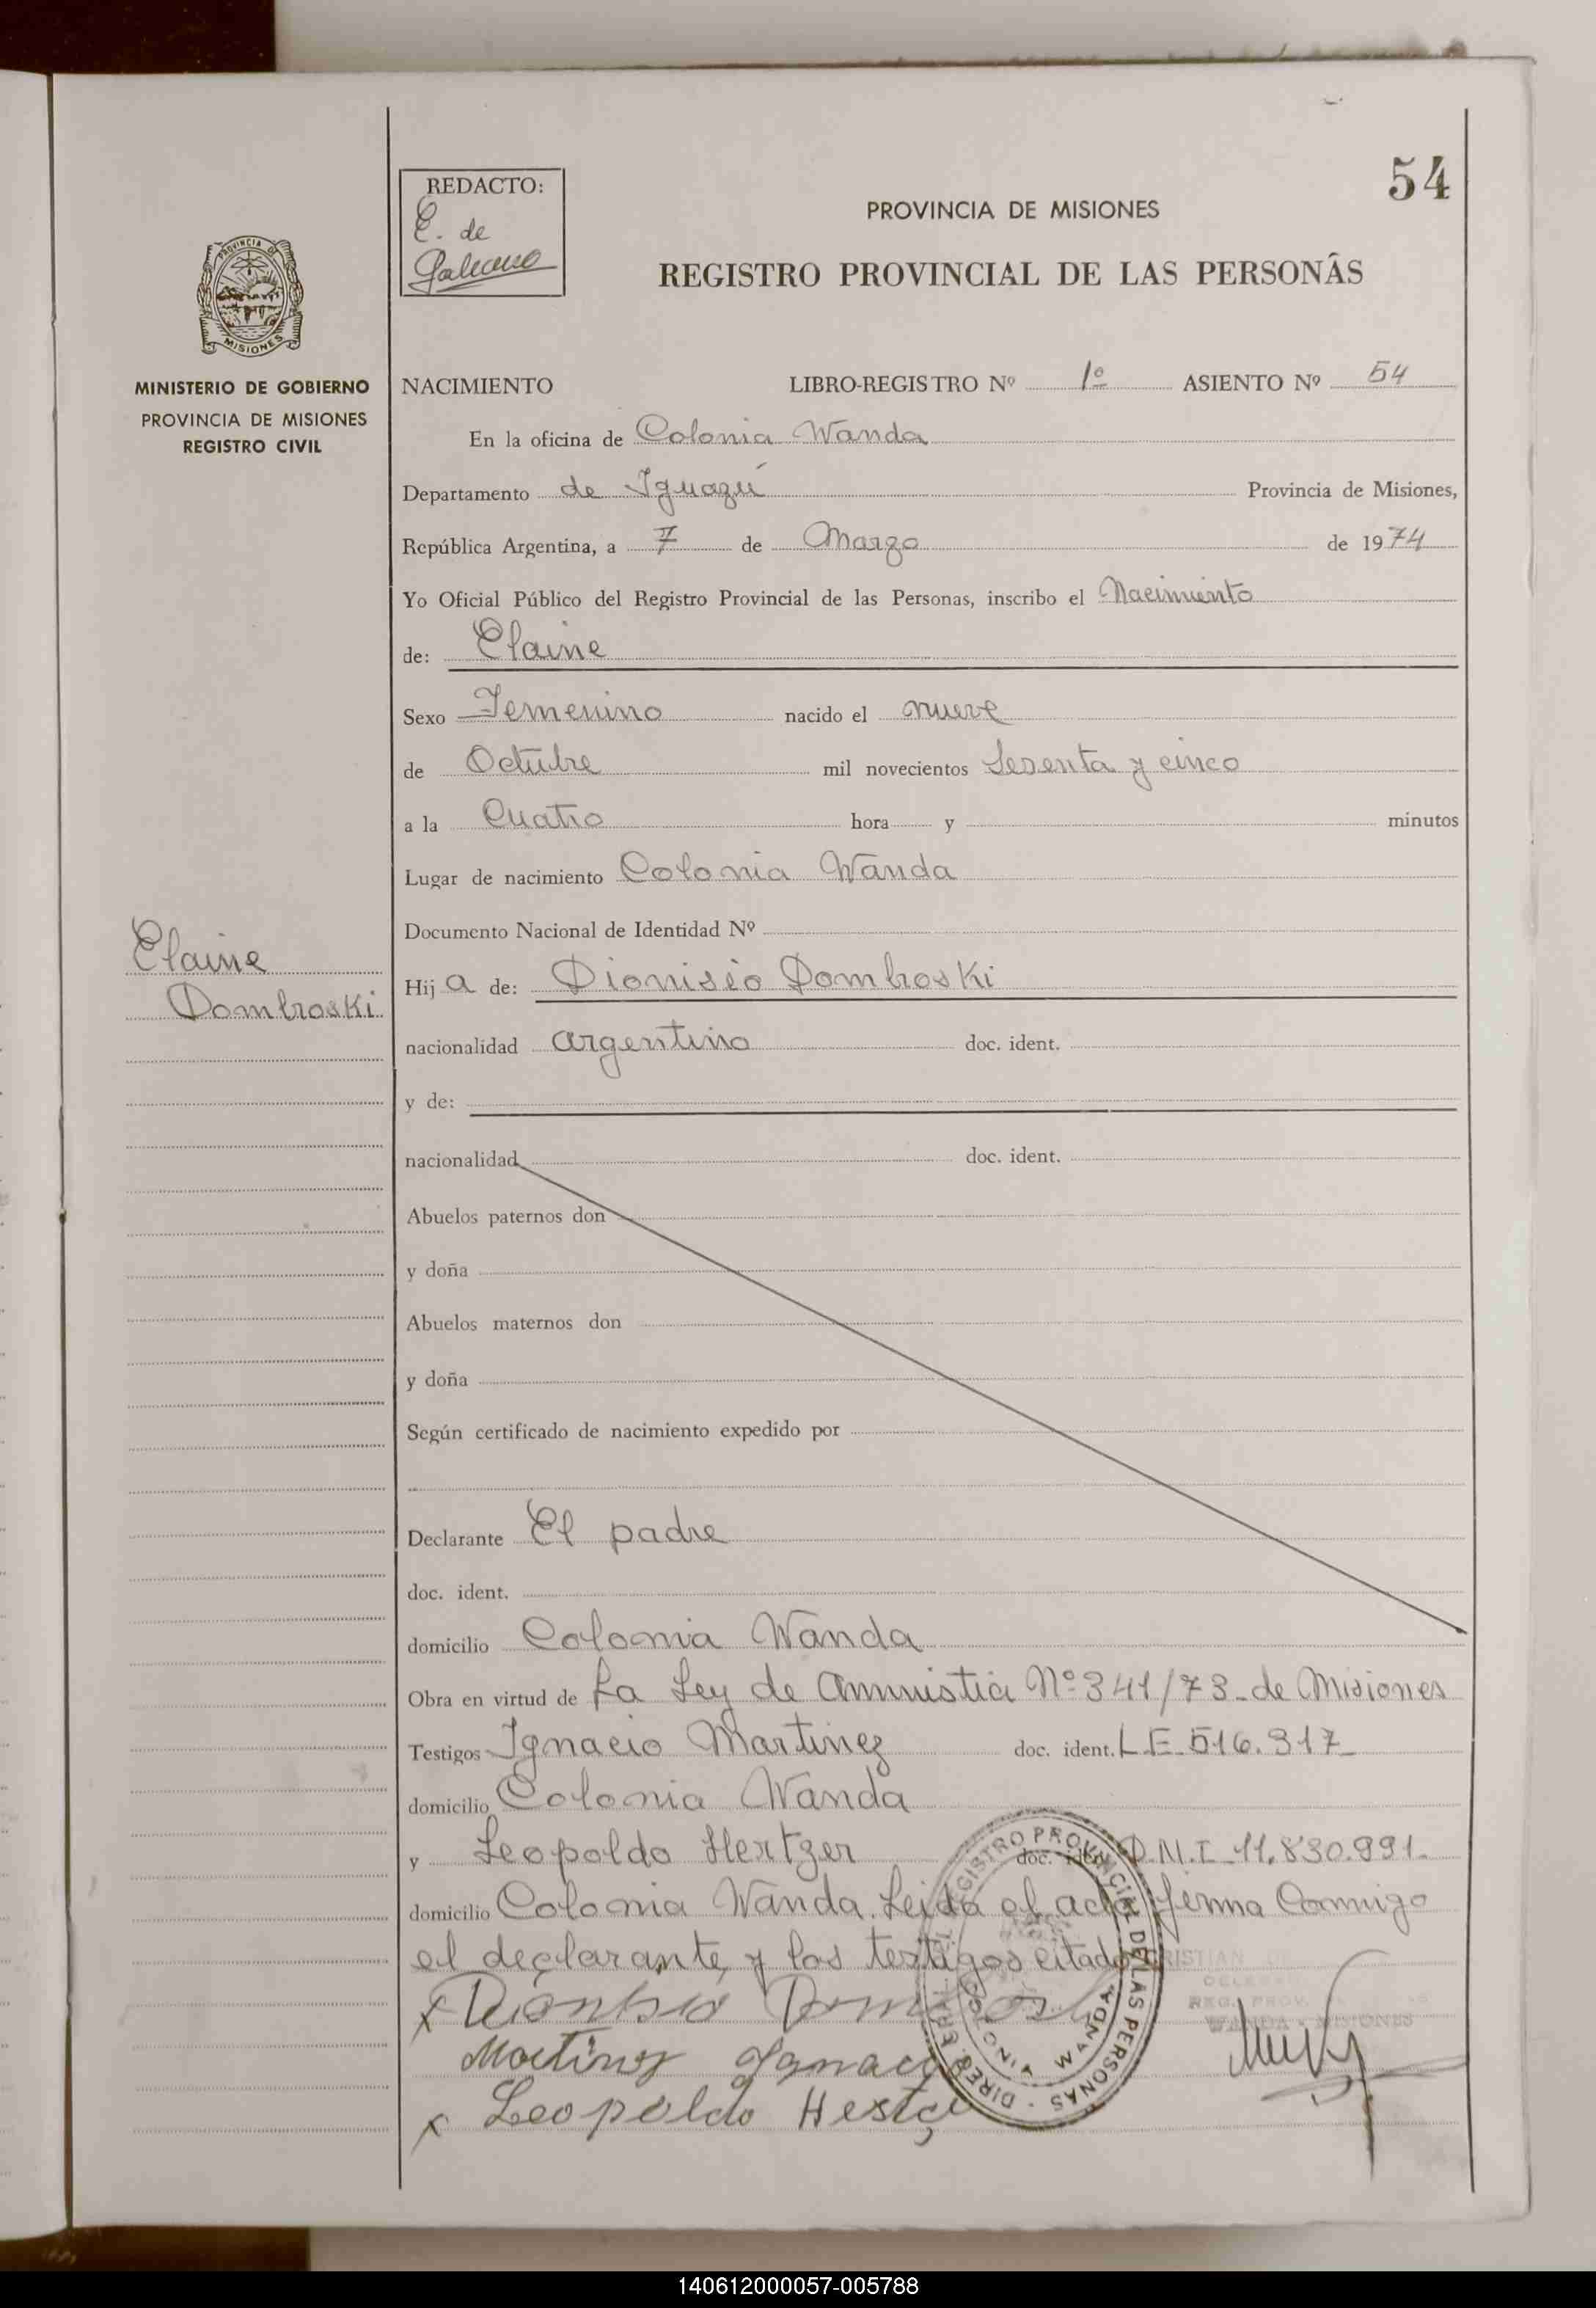 54
REDACTO:
E. de
Galeano
PROVINCIA DE MISIONES
REGISTRO PROVINCIAL DE LAS PERSONAS
PROVINCIA DE
MISIONES
MINISTERIO DE GOBIERNO
PROVINCIA DE MISIONES
REGISTRO CIVIL
NACIMIENTO LIBRO-REGISTRO Nº 1º ASIENTO Nº 54
En la oficina de Colonia Wanda
Departamento de Iguazú Provincia de Misiones,
República Argentina, a 7 de Marzo de 1974
Yo Oficial Público del Registro Provincial de las Personas, inscribo el Nacimiento
de: Elaine
Sexo Femenino nacido el nueve
de Octubre mil novecientos Sesenta y cinco
a la Cuatro hora y minutos
Lugar de nacimiento Colonia Wanda
Documento Nacional de Identidad Nº
Elaine
Dombroski
Hija de: Dionisio Dombroski
nacionalidad argentino doc. ident.
y de:
nacionalidad doc. ident.
Abuelos paternos don
y doña
Abuelos maternos don
y doña
Según certificado de nacimiento expedido por
Declarante El padre
doc. ident.
domicilio Colonia Wanda
Obra en virtud de La Ley de Amnistia Nº 341/73 de Misiones
Testigos Ignacio Martinez doc. ident. L.E. 516.317
domicilio Colonia Wanda
y Leopoldo Hertzer doc. ident. D.N.I. 11.830.991.
domicilio Colonia Wanda. Leida el acta firma Conmigo
el declarante y los testigos citados
REGISTRO PROVINCIAL DE LAS PERSONAS
WANDA
WANDA - MISIONES
Martinez Ignacio
x Leopoldo
140612000057-005788